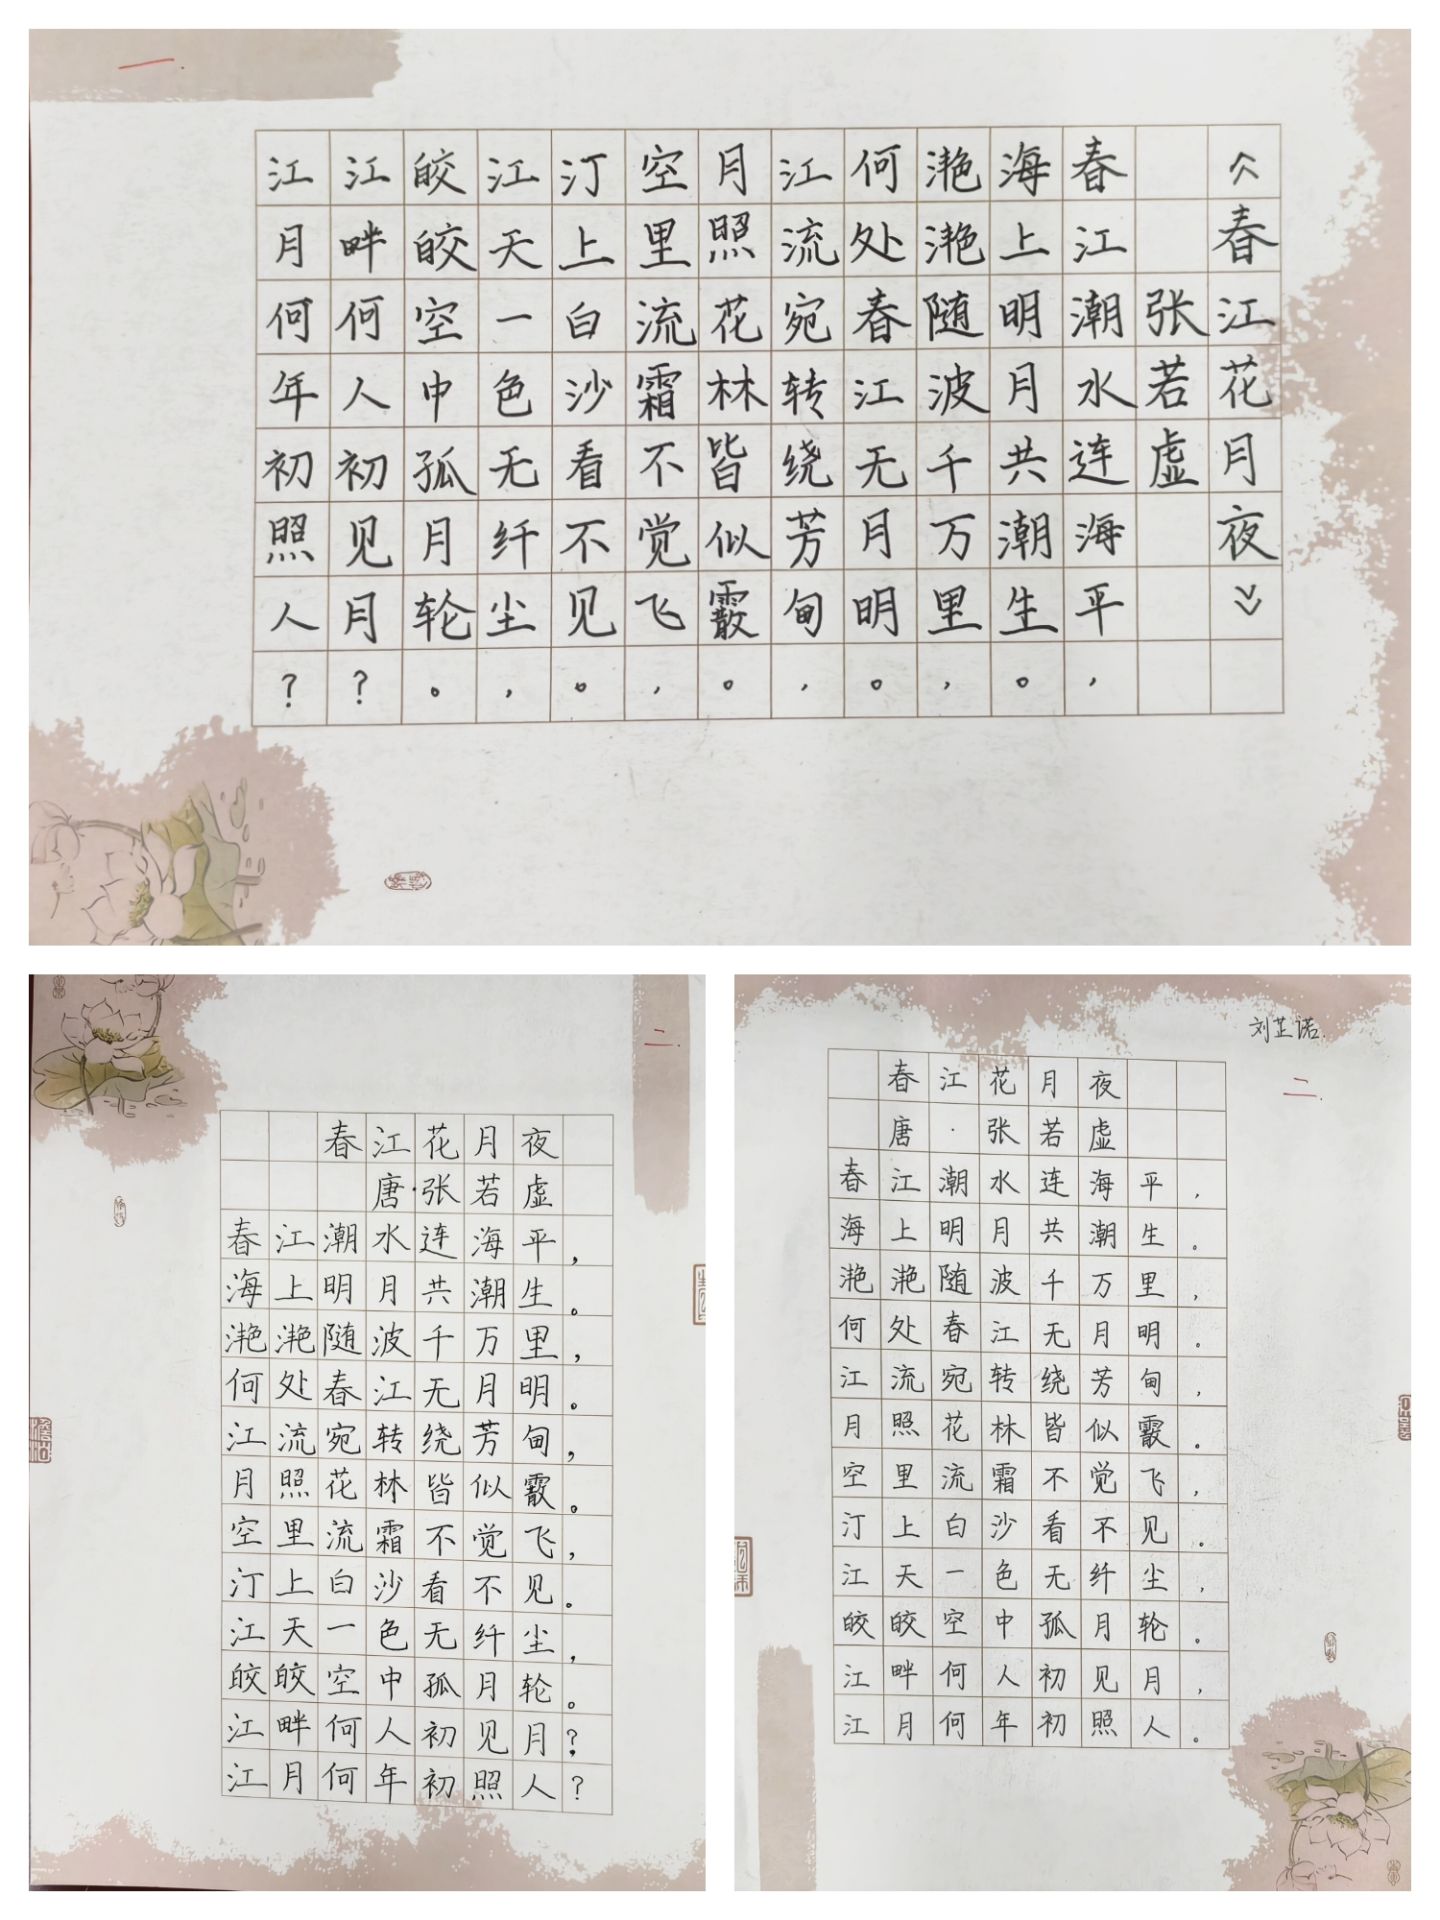 一.
《春江花月夜》
张若虚
春江潮水连海平,
海上明月共潮生。
滟滟随波千万里,
何处春江无月明。
江流宛转绕芳甸,
月照花林皆似霰。
空里流霜不觉飞,
汀上白沙看不见。
江天一色无纤尘,
皎皎空中孤月轮。
江畔何人初见月?
江月何年初照人?
二.
春江花月夜
唐·张若虚
春江潮水连海平,
海上明月共潮生。
滟滟随波千万里,
何处春江无月明。
江流宛转绕芳甸,
月照花林皆似霰。
空里流霜不觉飞,
汀上白沙看不见。
江天一色无纤尘,
皎皎空中孤月轮。
江畔何人初见月?
江月何年初照人?
刘芷诺.
二.
春江花月夜
唐·张若虚
春江潮水连海平,
海上明月共潮生。
滟滟随波千万里,
何处春江无月明。
江流宛转绕芳甸,
月照花林皆似霰。
空里流霜不觉飞,
汀上白沙看不见。
江天一色无纤尘,
皎皎空中孤月轮。
江畔何人初见月,
江月何年初照人。